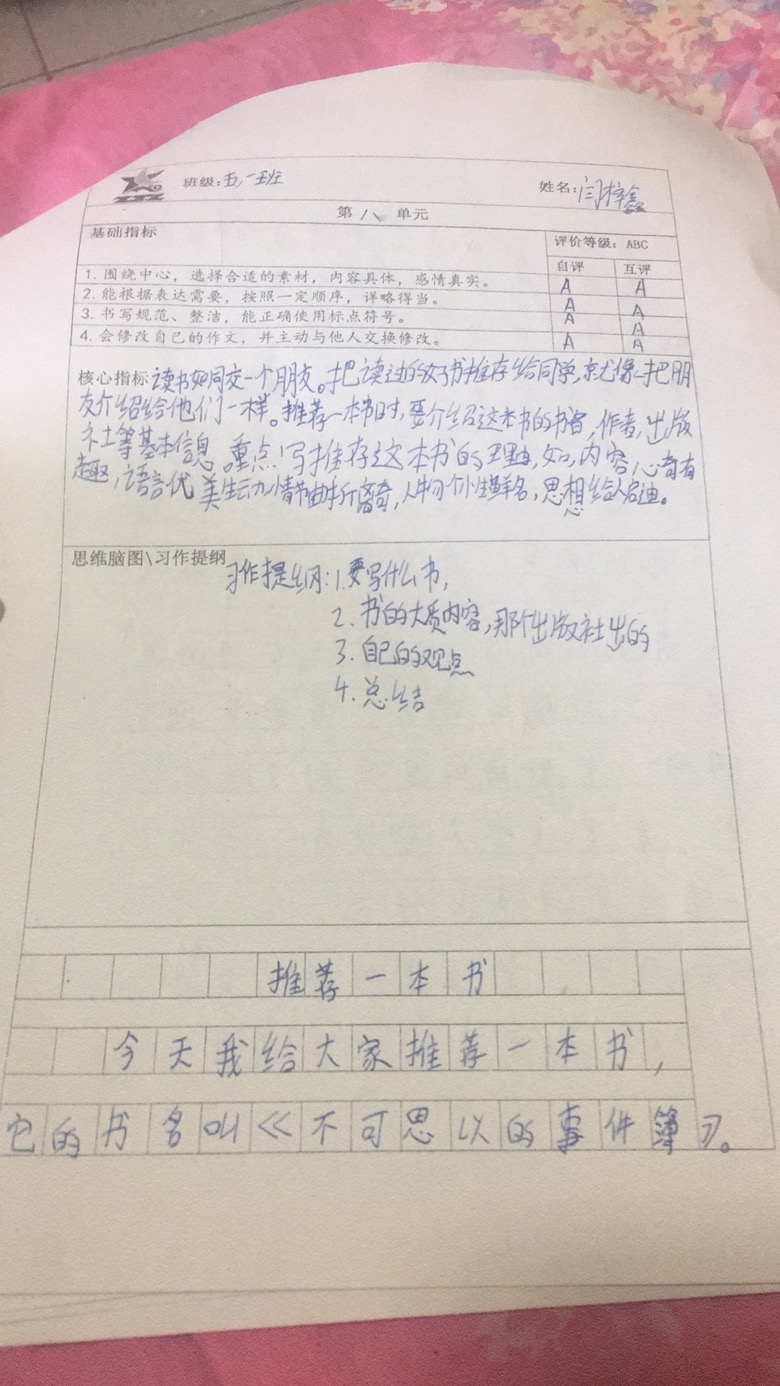 班级：五，一班 姓名：闫梓鑫
第八单元
基础指标 评价等级：ABC
自评 互评
1. 围绕中心，选择合适的素材，内容具体，感情真实。 A A
2. 能根据表达需要，按照一定顺序，详略得当。 A A
3. 书写规范、整洁，能正确使用标点符号。 A A
4. 会修改自己的作文，并主动与他人交换修改。 A A
核心指标 读书如同交一个朋友。把读过的好书推荐给同学，就像把朋
友介绍给他们一样。推荐一本书时，要介绍这本书的书名，作者，出版
社等基本信息。重点写推荐这本书的理由，如，内容心奇有
趣，语言优美生动，情节曲折离奇，人物个性鲜名，思想给人启迪。
思维脑图\习作提纲
习作提纲：1.要写什么书，
2.书的大质内容，那个出版社出的
3.自己的观点
4.总结
推荐一本书
今天我给大家推荐一本书，
它的书名叫《不可思以的事件簿》。